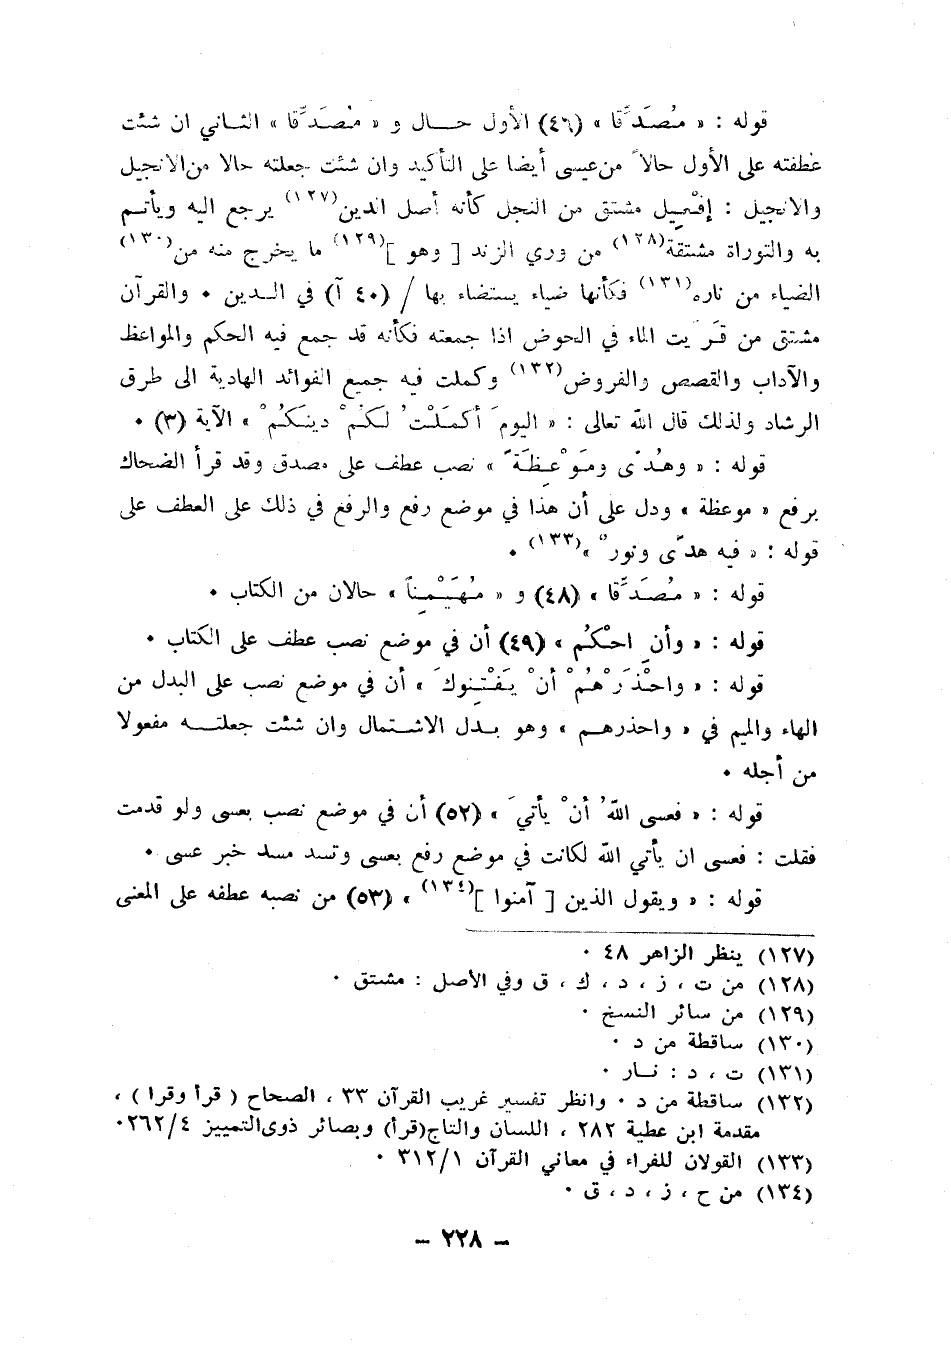 قوله : « مُصَدِّقا » (٤٦) الأول حــال و « مُصَدِّقا » الثــاني ان شئت
عطفته على الأول حالاً من عيسى أيضا على التأكيد وان شئت جعلته حالا من الانجيل
والانجيل : إفْعِيل مشتق من النجل كأنه أصل الدين(١٢٧) يرجع اليه ويأتــم
به والتوراة مشتقة(١٢٨) من وري الزند [ وهو ](١٢٩) ما يخرج منه من(١٣٠)
الضياء من ناره(١٣١) فكأنها ضياء يستضاء بها / (٤٠ آ) في الــدين ٠ والقرآن
مشتق من قَرَيت الماء في الحوض اذا جمعته فكأنه قد جمع فيه الحكم والمواعظ
والآداب والقصص والفروض(١٣٢) وكملت فيه جميع الفوائد الهادية الى طرق
الرشاد ولذلك قال الله تعالى : « اليومَ أكمَلْتُ لَكُمْ دينَكُمْ » الآية (٣) ٠
قوله : « وهُدًى ومَوْعِظَةً » نصب عطف على مصدق وقد قرأ الضحاك
برفع « موعظة » ودل على أن هذا في موضع رفع والرفع في ذلك على العطف على
قوله : « فيه هدًى ونورٌ »(١٣٣) ٠
قوله : « مُصَدِّقا » (٤٨) و « مُهَيْمِناً » حالان من الكتاب ٠
قوله : « وأنِ احْكُم » (٤٩) أن في موضع نصب عطف على الكتاب ٠
قوله : « واحْذَرْهُمْ أنْ يَفْتِنوكَ » أن في موضع نصب على البدل من
الهاء والميم في « واحذرهــم » وهو بــدل الاشــتمال وان شئت جعلتــه مفعولا
من أجله ٠
قوله : « فعسى اللهُ أنْ يأتيَ » (٥٢) أن في موضع نصب بعسى ولو قدمت
فقلت : فعسى ان يأتي الله لكانت في موضع رفع بعسى وتسد مسد خبر عسى ٠
قوله : « ويقول الذين [ آمنوا ](١٣٤) » (٥٣) من نصبه عطفه على المعنى
(١٢٧) ينظر الزاهر ٤٨ ٠
(١٢٨) من ت ، ز ، د ، ك ، ق وفي الأصل : مشتق ٠
(١٢٩) من سائر النسخ ٠
(١٣٠) ساقطة من د ٠
(١٣١) ت ، د : نــار ٠
(١٣٢) ساقطة من د ٠ وانظر تفسير غريب القرآن ٣٣ ، الصحاح ( قرأ وقرا ) ،
مقدمة ابن عطية ٢٨٢ ، اللسان والتاج(قرأ) وبصائر ذوى التمييز ٢٦٢/٤٠
(١٣٣) القولان للفراء في معاني القرآن ٣١٢/١ ٠
(١٣٤) من ح ، ز ، د ، ق ٠
– ٢٢٨ –